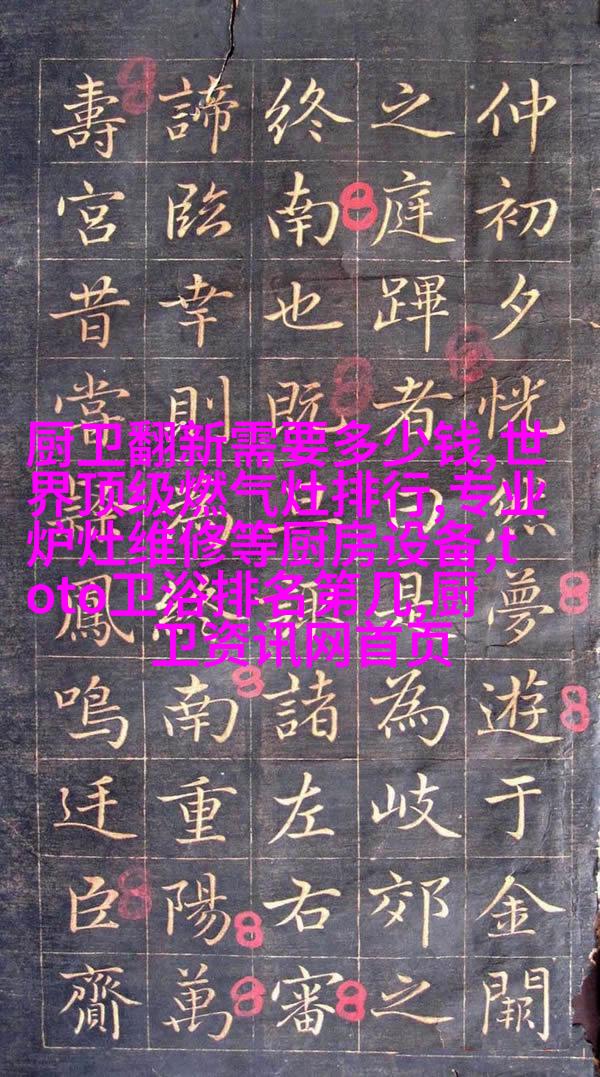 仲初夕恍然夢遊于金闕
之庭蹕者是為岐郊之
終南也既諸左右審
諦臨幸則終南重陽萬
壽宮昔當鳳鳴迂臣齎
厨卫翻新需要多少钱,世
界顶级燃气灶排行,专业
炉灶维修等厨房设备,t
oto卫浴排名第几,厨
卫资讯网首页